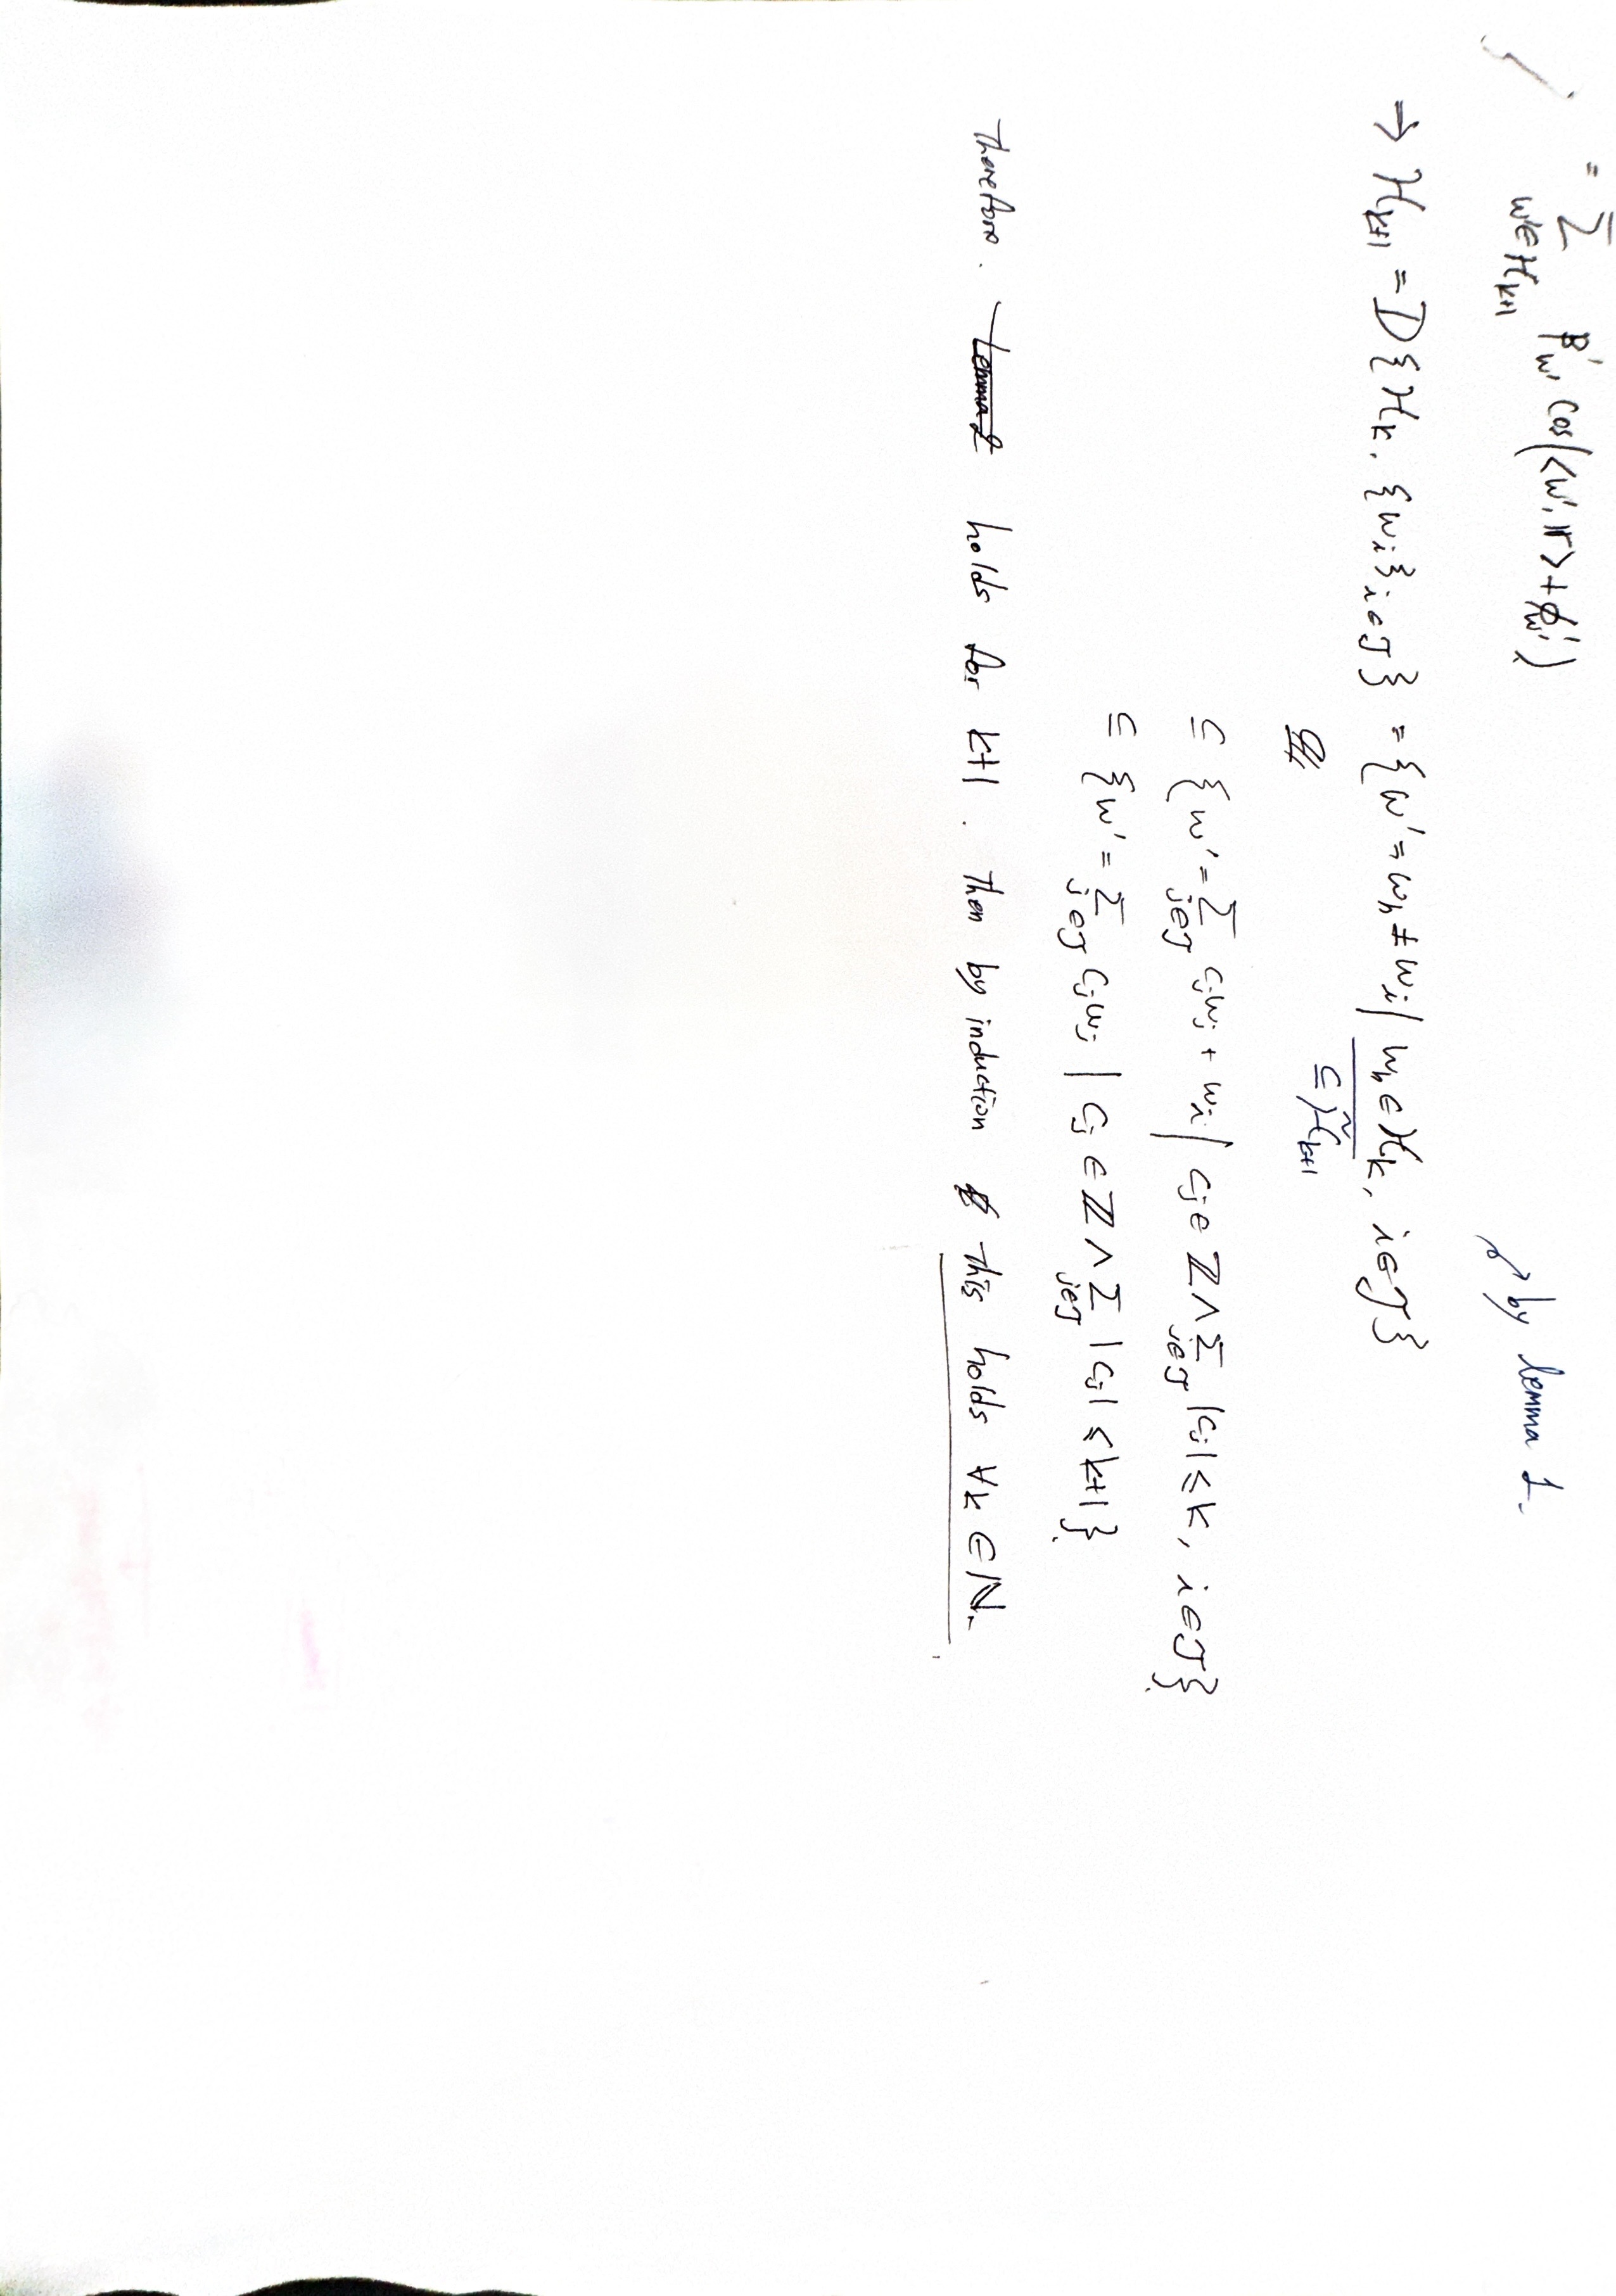 = Σ_{w'∈ℋ_{k+1}} β'_{w'} cos(<w', r> + ϕ'_{w'})
↝ by lemma 1.
→ ℋ_{k+1} = D{ℋ_k, {w_i}_{i∈J}} = {w' = w_h ± w_i | w_h ∈ ℋ_k, i∈J}
⊆ ℋ̃_{k+1}
⊆ {w' = Σ_{j∈J} c_j w_j + w_i | c_j ∈ ℤ ∧ Σ_{j∈J} |c_j| ≤ k, i∈J}
⊆ {w' = Σ_{j∈J} c_j w_j | c_j ∈ ℤ ∧ Σ_{j∈J} |c_j| ≤ k+1}.
Therefore. Lemma 2 holds for k+1. Then by induction this holds ∀k ∈ ℕ.